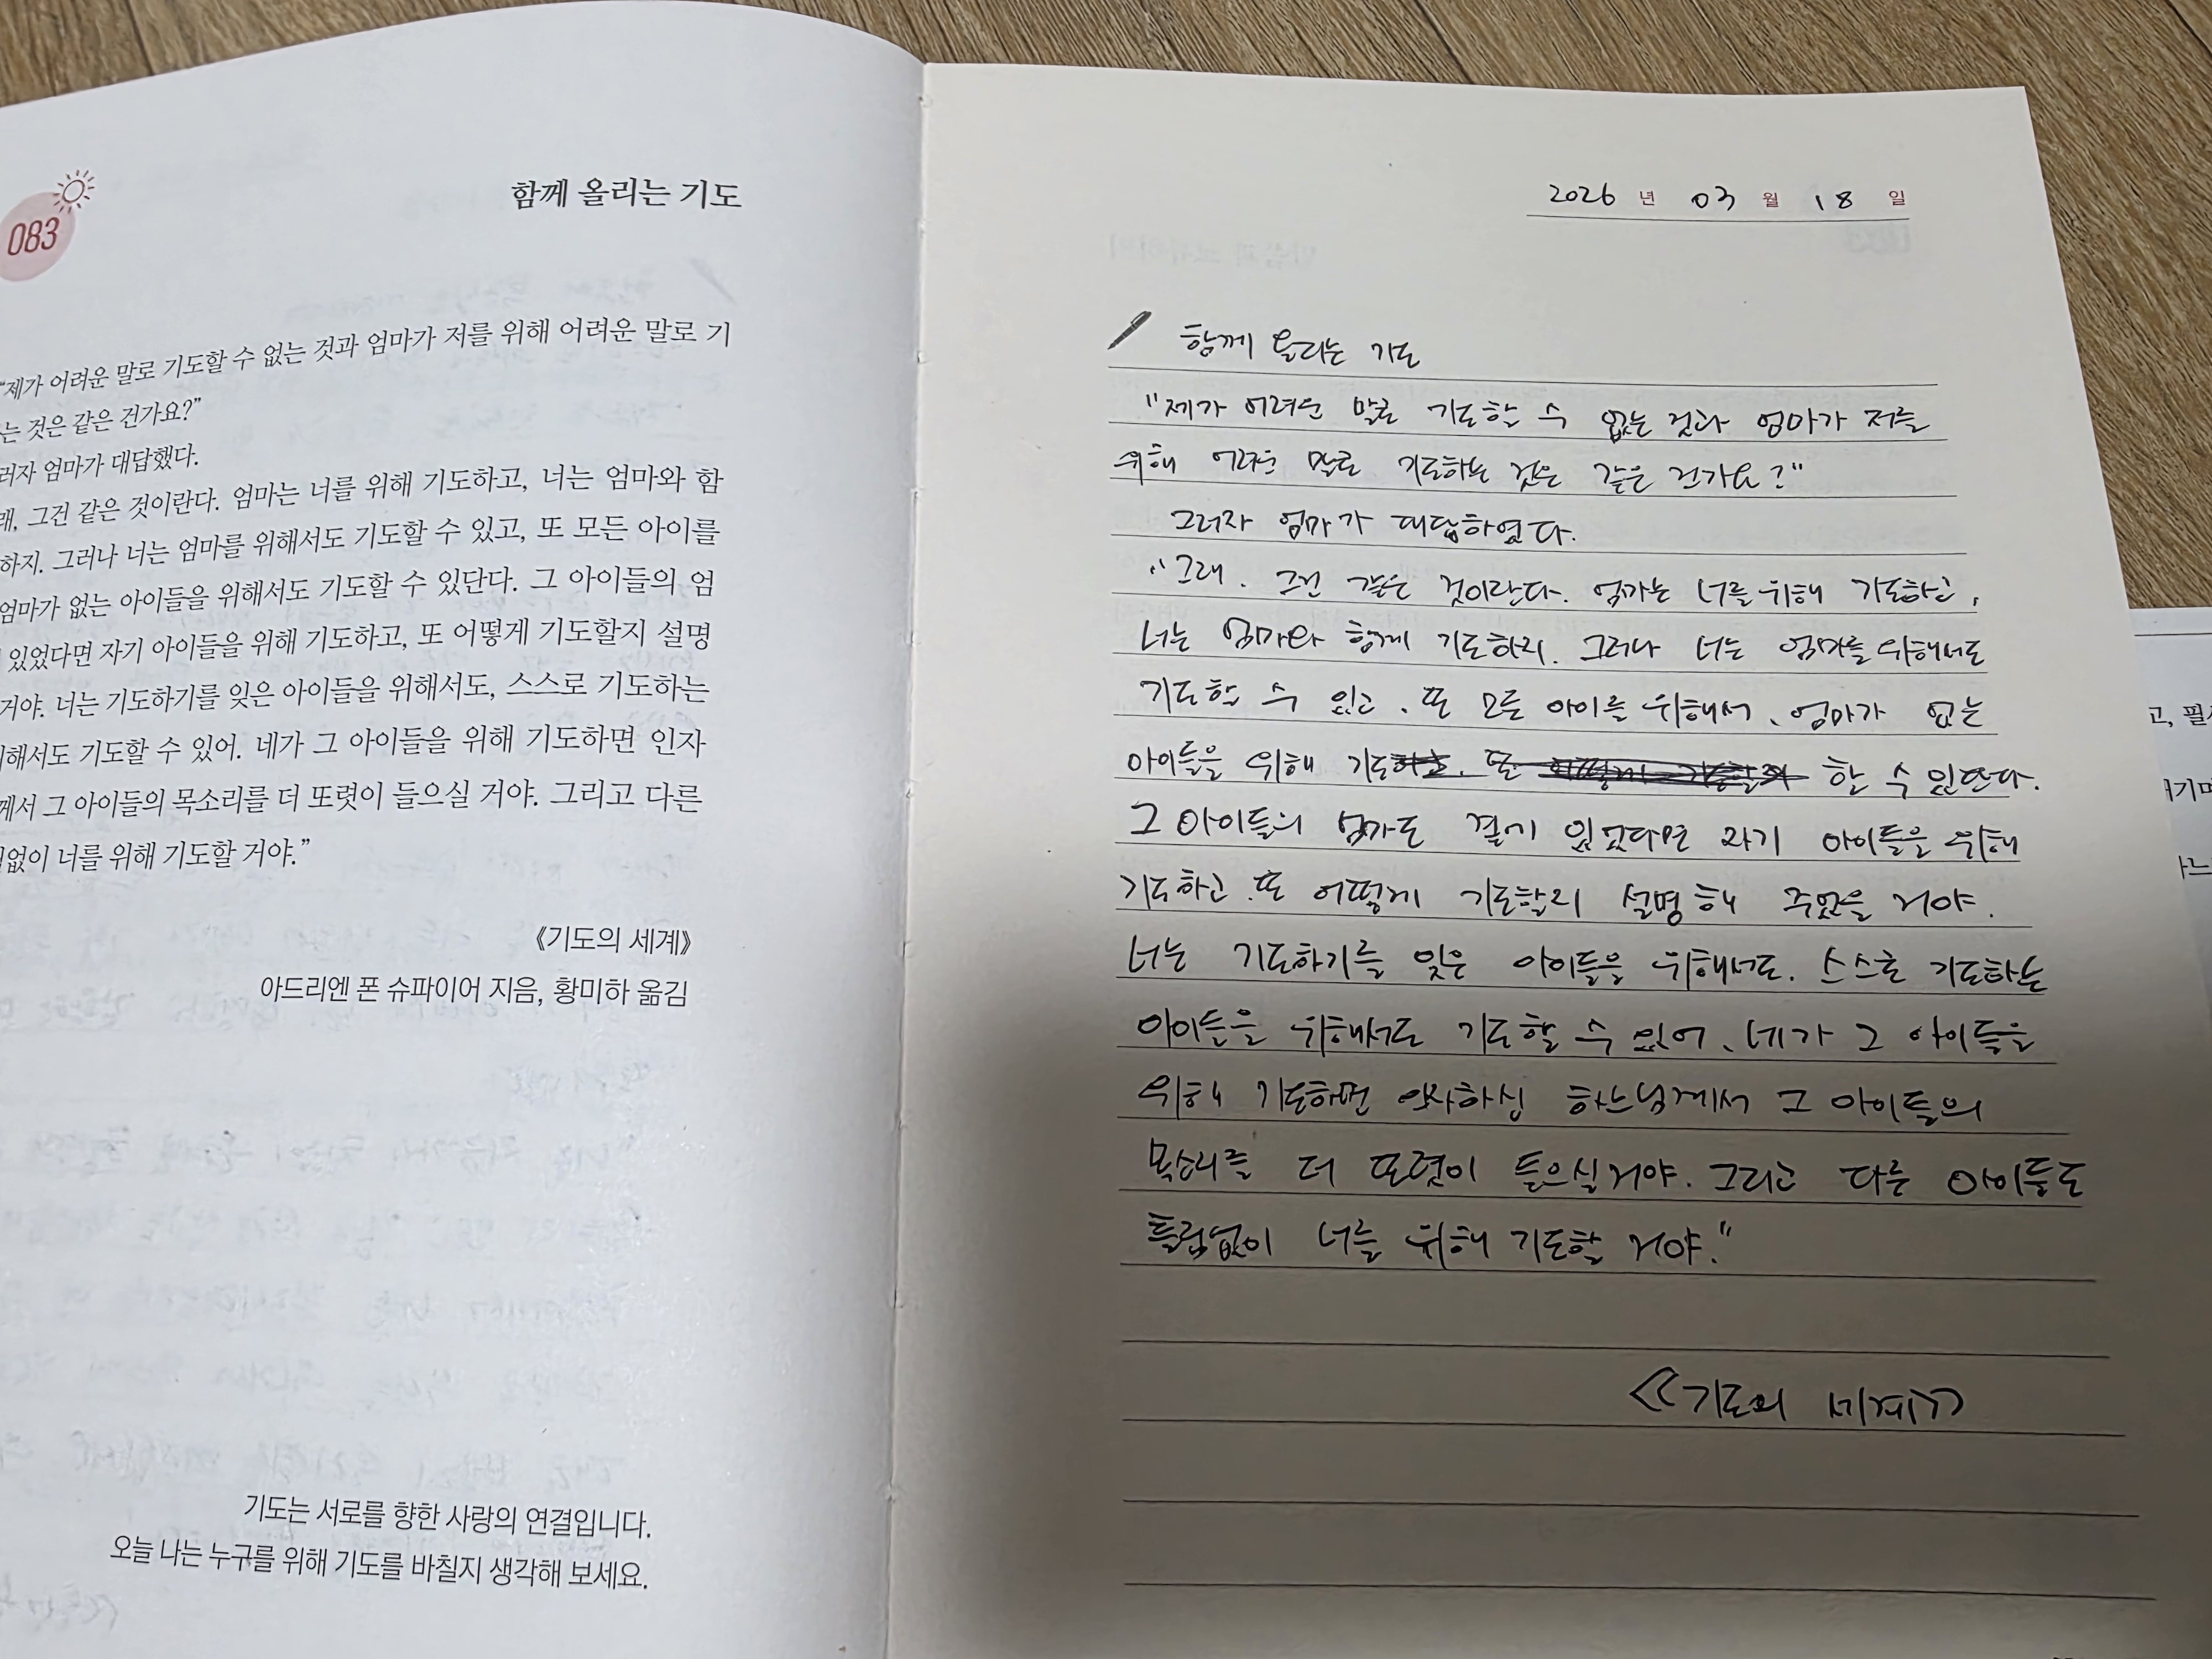 083
함께 올리는 기도
“제가 어려운 말로 기도할 수 없는 것과 엄마가 저를 위해 어려운 말로 기
는 것은 같은 건가요?”
러자 엄마가 대답했다.
래, 그건 같은 것이란다. 엄마는 너를 위해 기도하고, 너는 엄마와 함
하지. 그러나 너는 엄마를 위해서도 기도할 수 있고, 또 모든 아이를
엄마가 없는 아이들을 위해서도 기도할 수 있단다. 그 아이들의 엄
있었다면 자기 아이들을 위해 기도하고, 또 어떻게 기도할지 설명
거야. 너는 기도하기를 잊은 아이들을 위해서도, 스스로 기도하는
위해서도 기도할 수 있어. 네가 그 아이들을 위해 기도하면 인자
께서 그 아이들의 목소리를 더 또렷이 들으실 거야. 그리고 다른
없이 너를 위해 기도할 거야.”
《기도의 세계》
아드리엔 폰 슈파이어 지음, 황미하 옮김
기도는 서로를 향한 사랑의 연결입니다.
오늘 나는 누구를 위해 기도를 바칠지 생각해 보세요.
2026 년 03 월 18 일
함께 올리는 기도
"제가 어려운 말로 기도할 수 없는 것과 엄마가 저를
위해 어려운 말로 기도하는 것은 같은 건가요?"
그러자 엄마가 대답하였다.
"그래. 그건 같은 것이란다. 엄마는 너를 위해 기도하고,
너는 엄마와 함께 기도하지. 그러나 너는 엄마를 위해서도
기도할 수 있고, 또 모든 아이를 위해서, 엄마가 없는
아이들을 위해 기도하고. 또 어떻게 기도할지 할 수 있단다.
그 아이들의 엄마도 곁에 있었다면 자기 아이들을 위해
기도하고. 또 어떻게 기도할지 설명해 주었을 거야.
너는 기도하기를 잊은 아이들을 위해서도. 스스로 기도하는
아이들을 위해서도 기도할 수 있어. 네가 그 아이들을
위해 기도하면 인자하신 하느님께서 그 아이들의
목소리를 더 또렷이 들으실 거야. 그리고 다른 아이들도
틀림없이 너를 위해 기도할 거야."
《기도의 세계》
고, 필